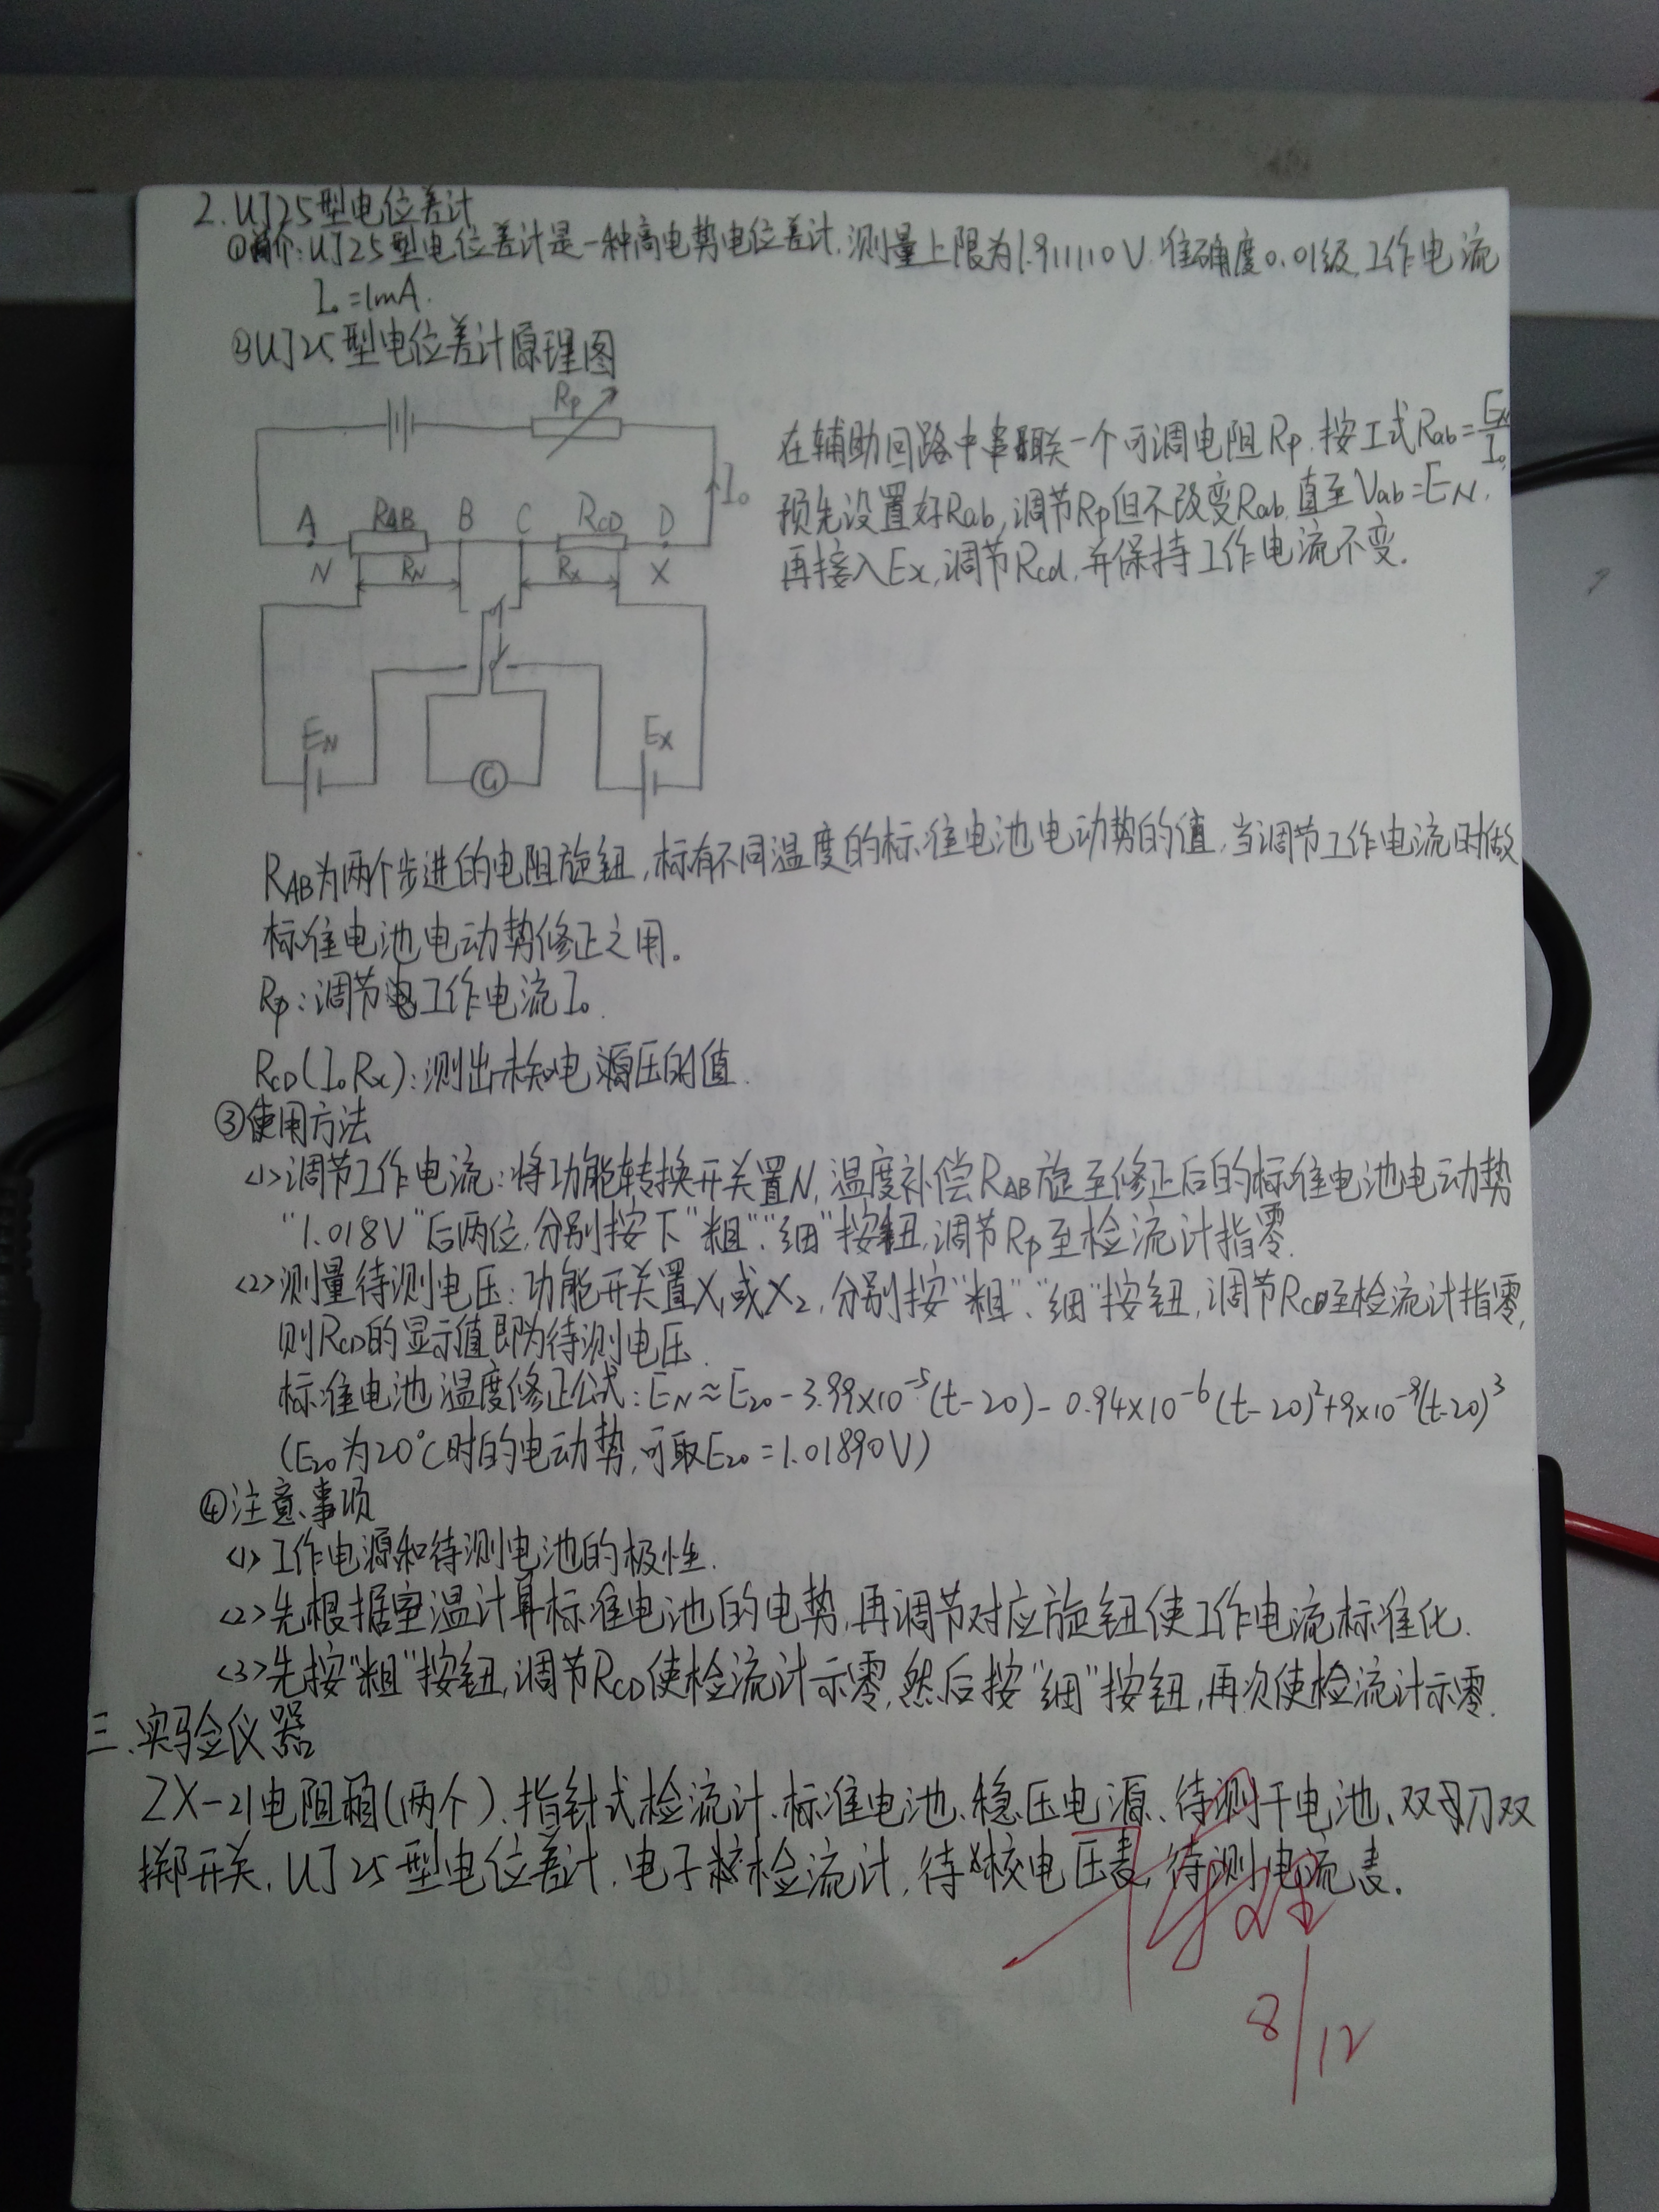 2. UJ25型电位差计
①简介:UJ25型电位差计是一种高电势电位差计,测量上限为1.911110V.准确度0.01级,工作电流
I₀=1mA.
②UJ25型电位差计原理图
Rp
I₀
A RAB B C RCD D
N RN Rx X
EN G Ex
在辅助回路中串联一个可调电阻Rp.按工式Rab=EN/I₀
预先设置好Rab,调节Rp但不改变Rab.直至Vab=EN.
再接入Ex,调节Rcd,并保持工作电流不变.
RAB为两个步进的电阻旋钮,标有不同温度的标准电池电动势的值,当调节工作电流时做
标准电池电动势修正之用。
Rp:调节工作电流I₀.
RCD(I₀Rx):测出未知电压的值.
③使用方法
<1>调节工作电流:将功能转换开关置N,温度补偿RAB旋至修正后的标准电池电动势
"1.018V"后两位,分别按下"粗"、"细"按钮,调节Rp至检流计指零.
<2>测量待测电压:功能开关置X₁或X₂,分别按"粗"、"细"按钮,调节RCD至检流计指零,
则RCD的显示值即为待测电压.
标准电池温度修正公式:EN≈E20-3.99×10⁻⁵(t-20)-0.94×10⁻⁶(t-20)²+9×10⁻⁹(t-20)³
(E20为20℃时的电动势,可取E20=1.01890V)
④注意事项
<1>工作电源和待测电池的极性.
<2>先根据室温计算标准电池的电势,再调节对应旋钮使工作电流标准化.
<3>先按"粗"按钮,调节RCD使检流计示零,然后按"细"按钮,再次使检流计示零.
三、实验仪器
ZX-21电阻箱(两个)、指针式检流计、标准电池、稳压电源、待测干电池、双刀双
掷开关,UJ25型电位差计,电子检流计,待校电压表,待测电流表.
8/12